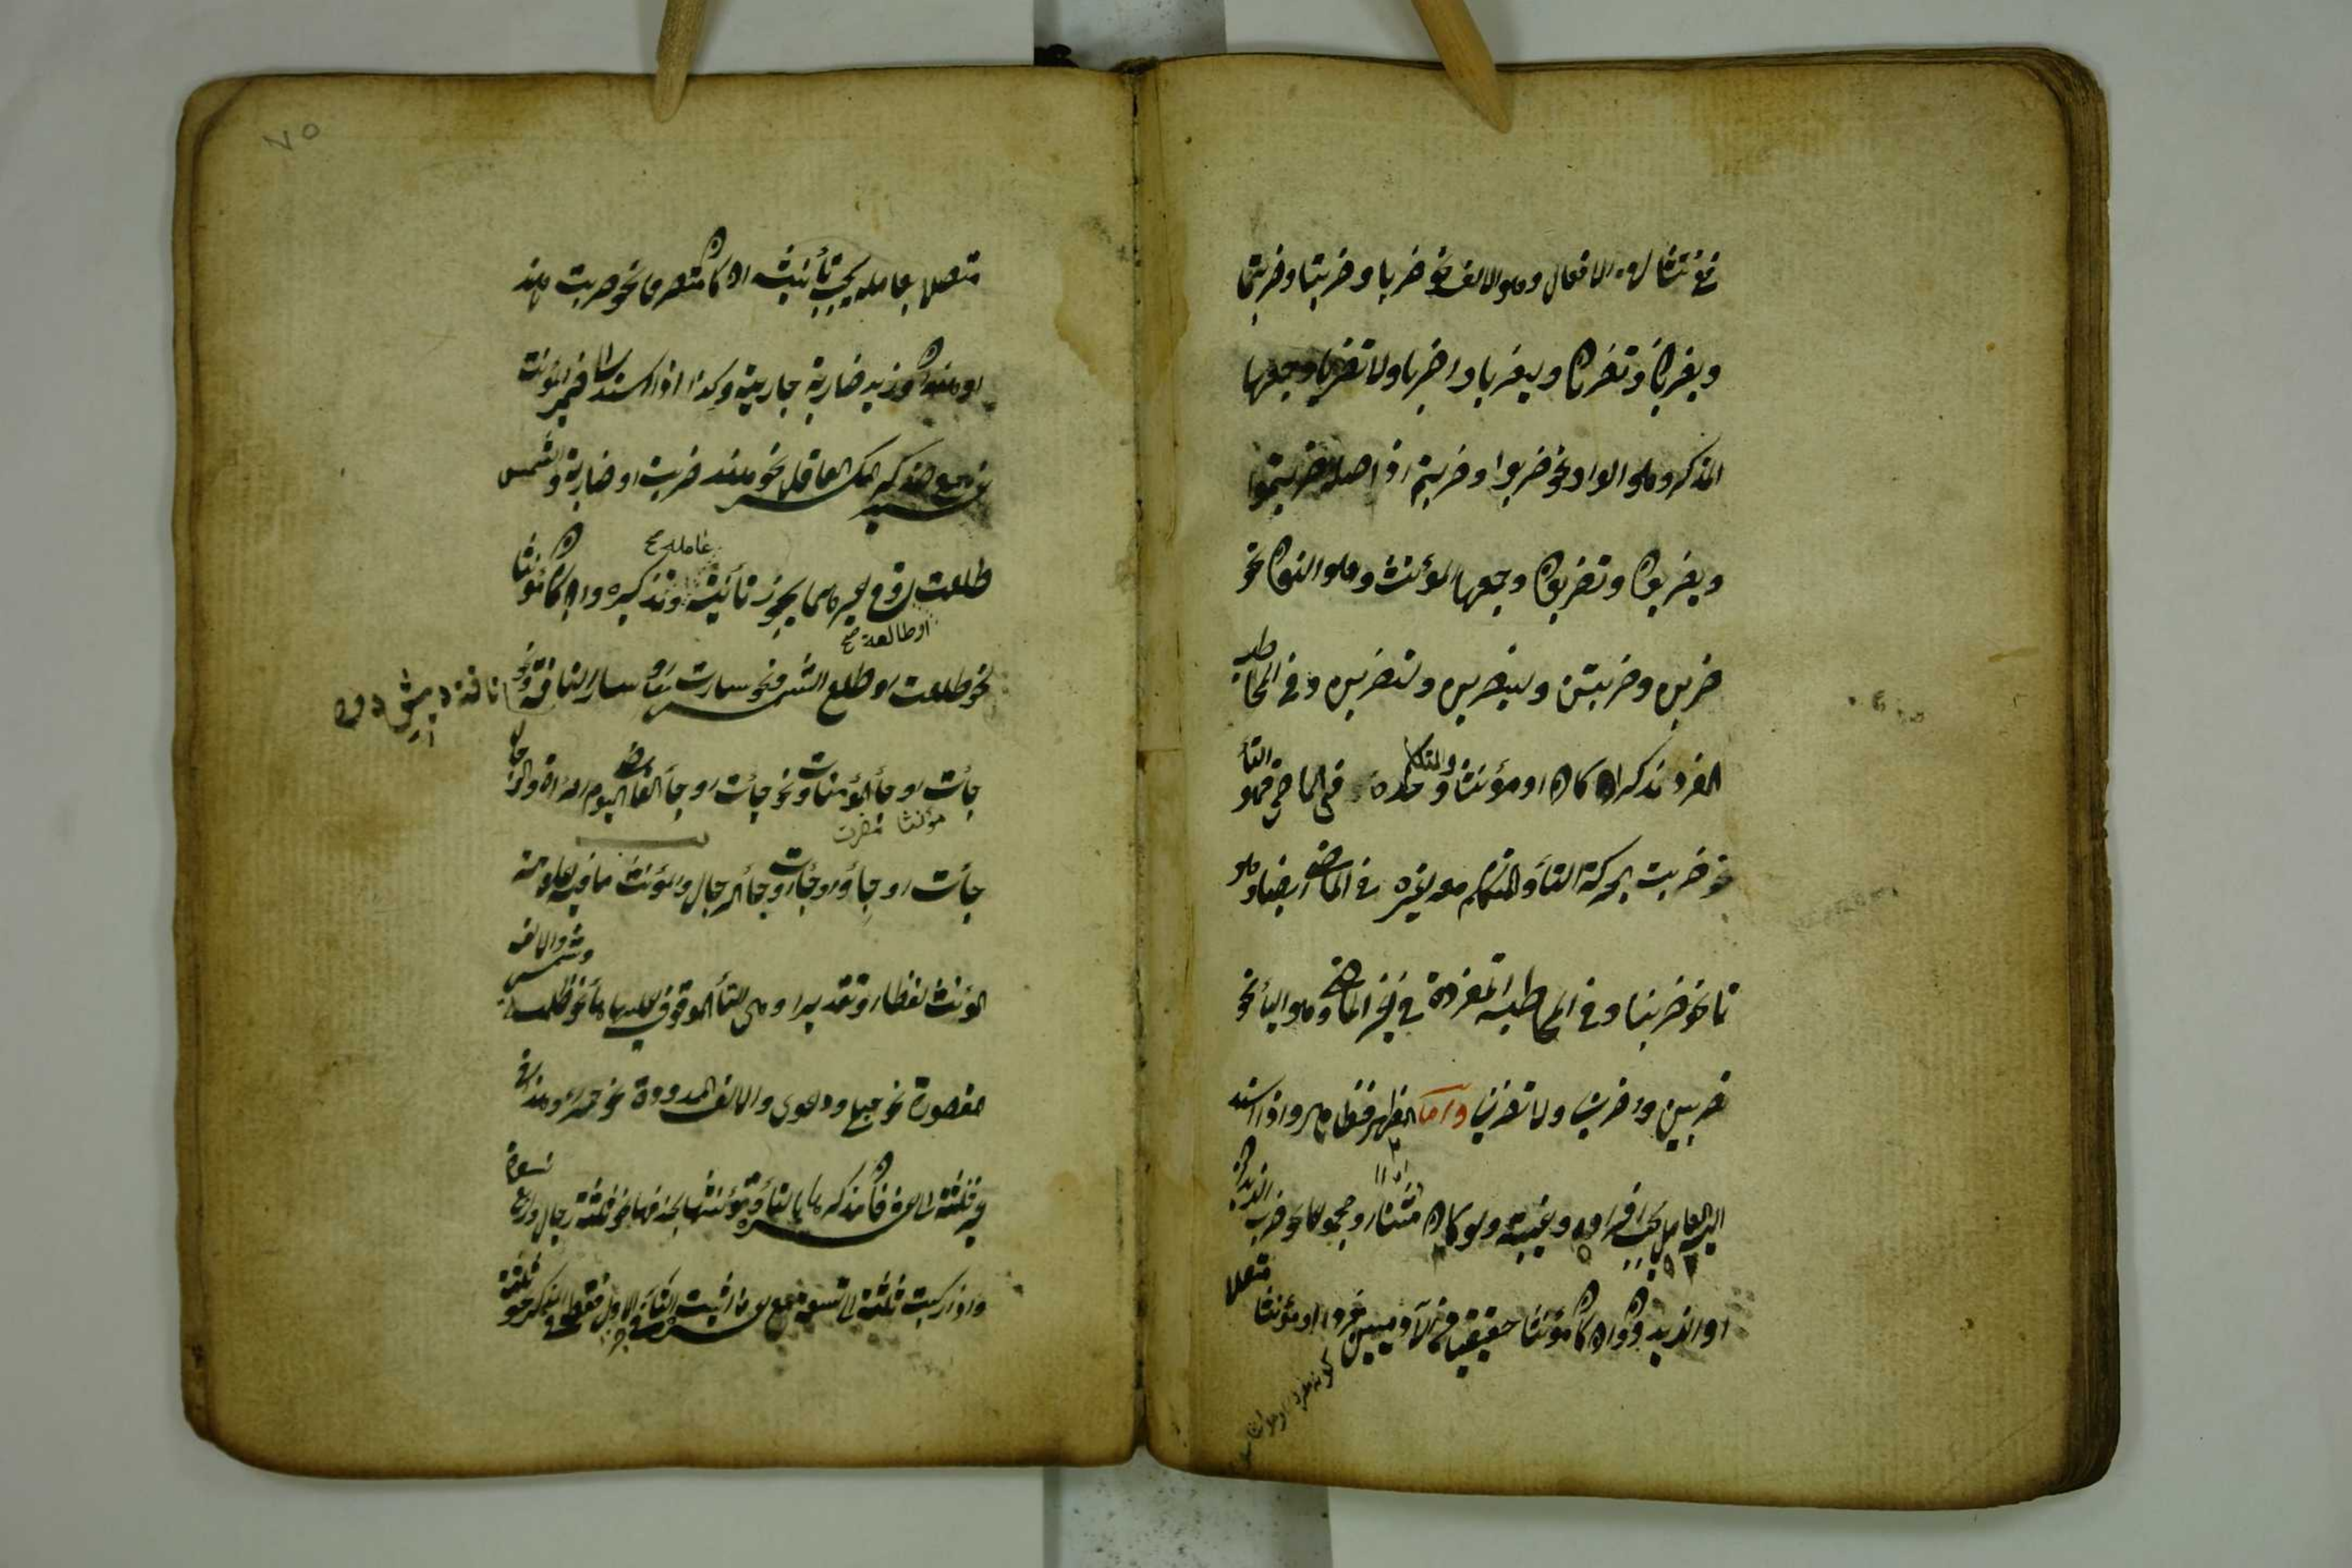 ففي تثنيتها من الافعال وهو الالف نحو ضربا وضربتا وضربتما
ويضربان وتضربان وليضربا واضربا ولا تضربا وجمعها
المذكر وهو الواو نحو ضربوا وضربتم اذ اصله ضربتموا
ويضربون وتضربون وجمعها المؤنث وهو النون نحو
ضربن وضربتن وليضربن ولتضربن وفي المخاطب
المفرد مذكرا كان او مؤنثا والمتكلم وحده في الماضي فهو التاء
نحو ضربت بحركة التاء والمتكلم معه غيره في الماضي ايضا وهو
نا نحو ضربنا وفي المخاطبة المفردة في غير الماضي وهو الياء نحو
تضربين واضربي ولا تضربي واما المظهر فظاهر واذا اسند
اليه العامل يجب افراده وغيبته ولو كان مثنا او مجموعا نحو ضرب الزيدان
او الزيدون وان كان مؤنثا حقيقيا من الآدميين مفردا او مؤنثا متصلا
متصلا بعامله يجب تأنيثه ان كان متصرفا نحو ضربت هند
او هندان وزيد ضاربة جاريته وكذا اذا اسند الى ضمير المؤنث
غير جمع المذكر المكسر العاقل نحو هند ضربت او ضاربة والشمس
طلعت وفي غيرهما يجوز تأنيث عامله صح وتذكيره وان كان مؤنثا
او طالعة صح
نحو طلعت او طلع الشمس ونحو سارت او سار الناقة ونحو
جاءت او جاء المؤمنات ونحو جاءت او جاء القاضي اليوم امرأة والرجال
مؤنثا نحو ضربت
جاءت او جاؤا وجاءت او جاء الرجال والمؤنث ما فيه علامة
المؤنث لفظا او تقديرا وهي التاء الموقوف عليها هاء نحو ظلمة وشمس والالف
مقصورة نحو حبلى ودعوى والالف الممدودة نحو حمراء وهذا في
غير ثلثة الى عشرة فان مذكرها بالتاء ومؤنثها بحذفها نحو ثلثة رجال واربع نسوة
واذا ركبت ثلثة الى تسعة مع عشرة اثبت التاء في الاول فقط في المذكر نحو ثلثة